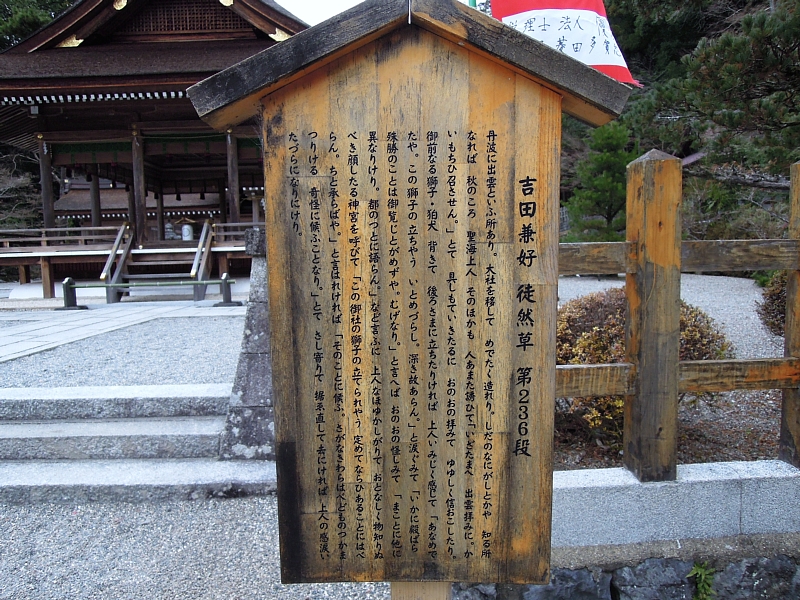 吉田兼好 徒然草 第236段
丹波に出雲といふ所あり。大社を移して めでたく造れり。しだのなにがしとかや 知る所
なれば 秋のころ 聖海上人 そのほかも 人あまた誘ひて「いざたまへ 出雲拝みに。か
いもちひ召させん。」とて 具しもていきたるに おのおの拝みて ゆゆしく信おこしたり。
御前なる獅子・狛犬 背きて 後ろさまに立ちたりければ 上人いみじく感じて「あなめで
たや。この獅子の立ちやう いとめづらし。深き故あらん。」と涙ぐみて「いかに殿ばら
殊勝のことは御覧じとがめずや。むげなり。」と言へば おのおの怪しみて 「まことに他に
異なりけり。都のつとに語らん。」など言ふに 上人なほゆかしがりて おとなしく物知りぬ
べき顔したる神官を呼びて 「この御社の獅子の立てられやう 定めてならひあることにはべ
らん。ちと承らばや。」と言はれければ 「そのことに候ふ。さがなきわらはべどものつかま
つりける 奇怪に候ふことなり。」とて さし寄りて 据ゑ直して 去にければ 上人の感涙い
たづらになりにけり。
税理士法人
菱田多賀